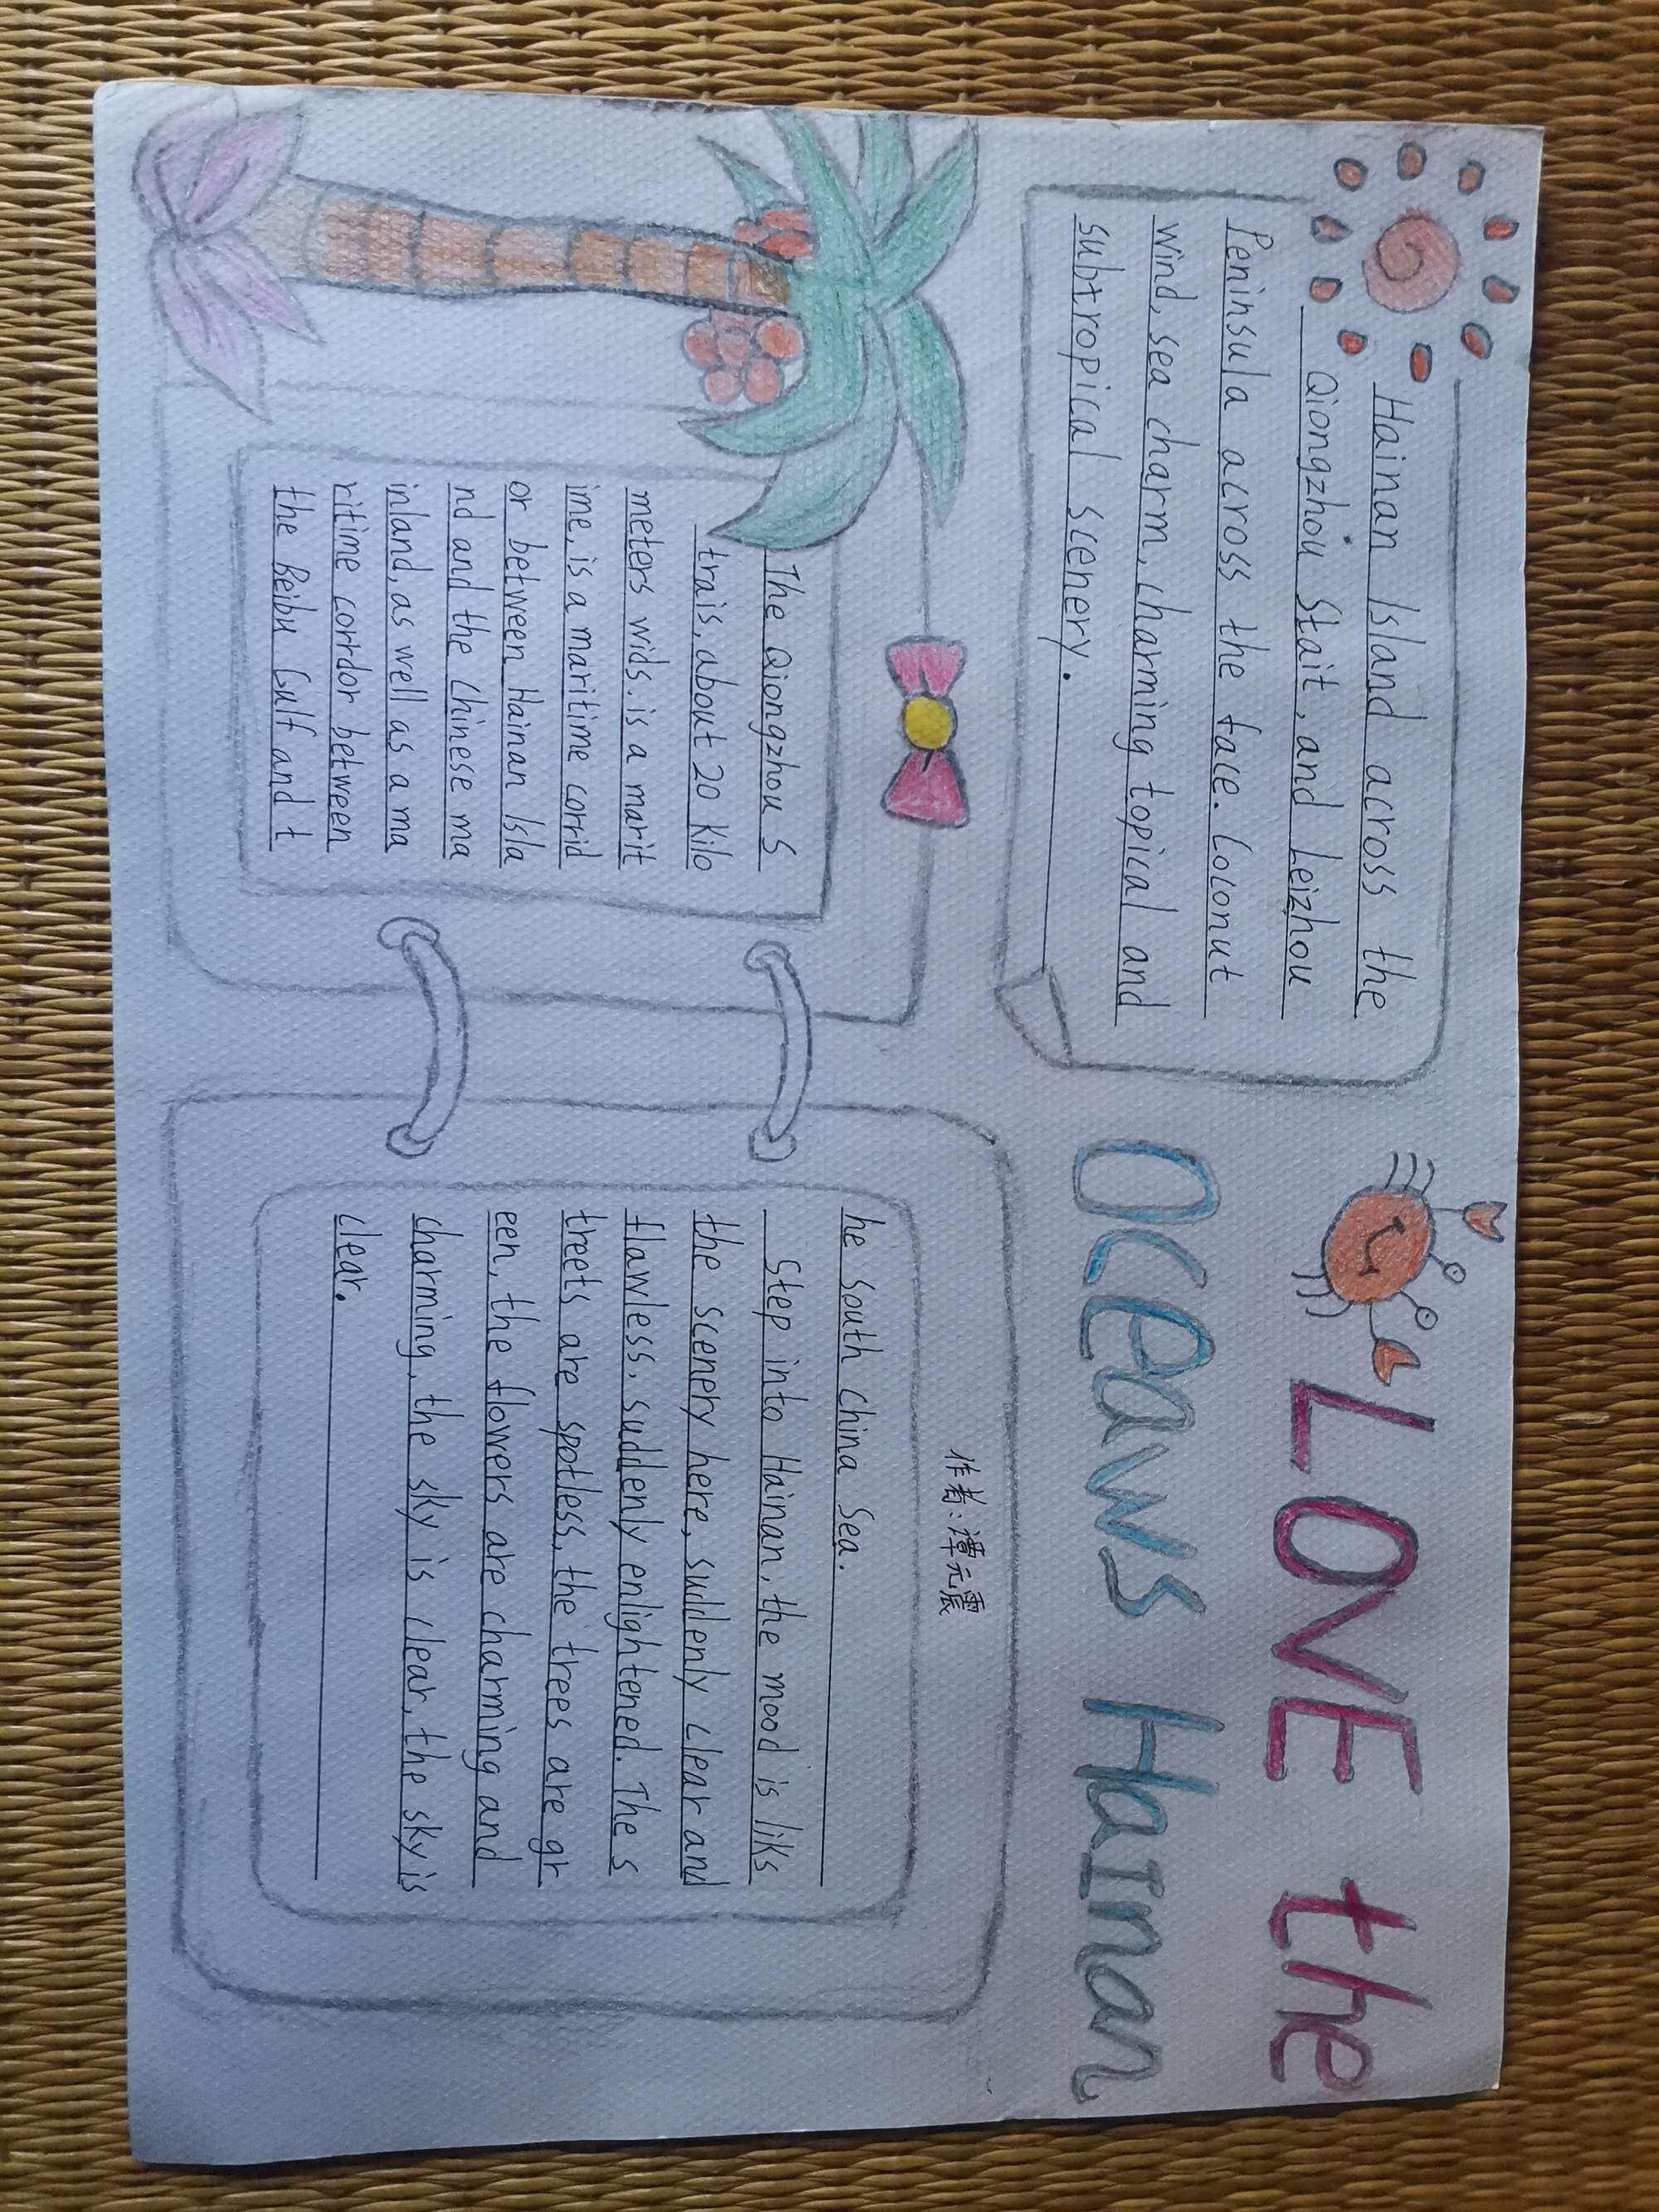 LOVE the
Oceans Hainan
作者:谭元震
Hainan Island across the
Qiongzhou Stait, and Leizhou
Peninsula across the face. Coconut
wind, sea charm, charming topical and
subtropical scenery.
The Qiongzhou S
trais, about 20 Kilo
meters wids. is a marit
ime, is a maritime corrid
or between Hainan Isla
nd and the Chinese ma
inland, as well as a ma
ritime corrdor between
the Beibu Gulf and t
he South China Sea.
Step into Hainan, the mood is liks
the scenery here, suddenly clear and
flawless, suddenly enlightened. The s
treets are spotless, the trees are gr
een, the flowers are charming and
charming, the sky is clear, the sky is
clear.